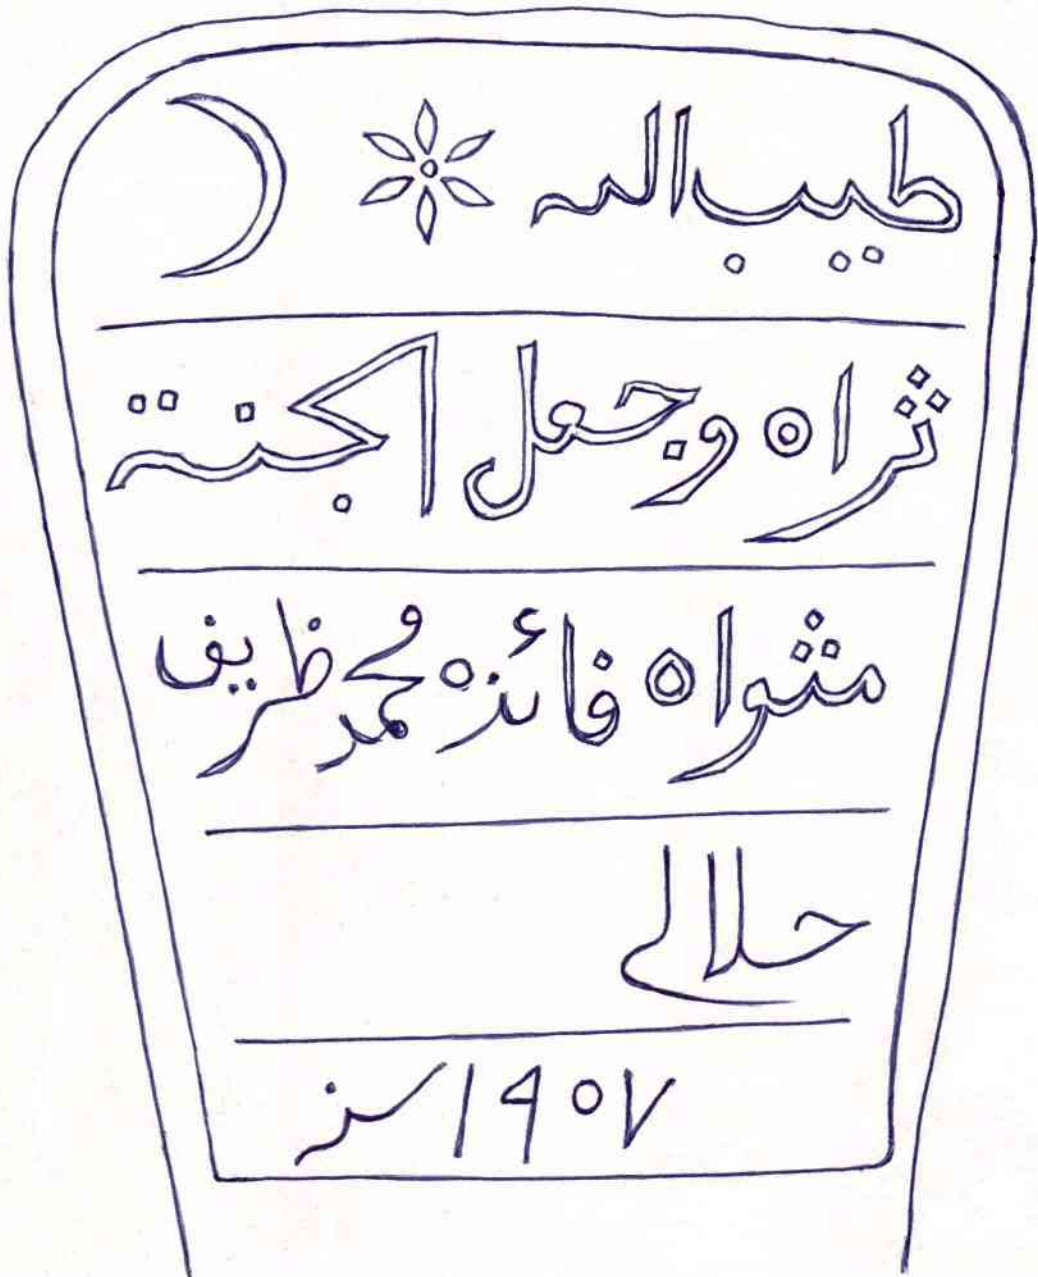 طيب الله
ثراه وجعل الجنة
مثواه فائزه محمد ظريف
حلالي
١٩٥٧